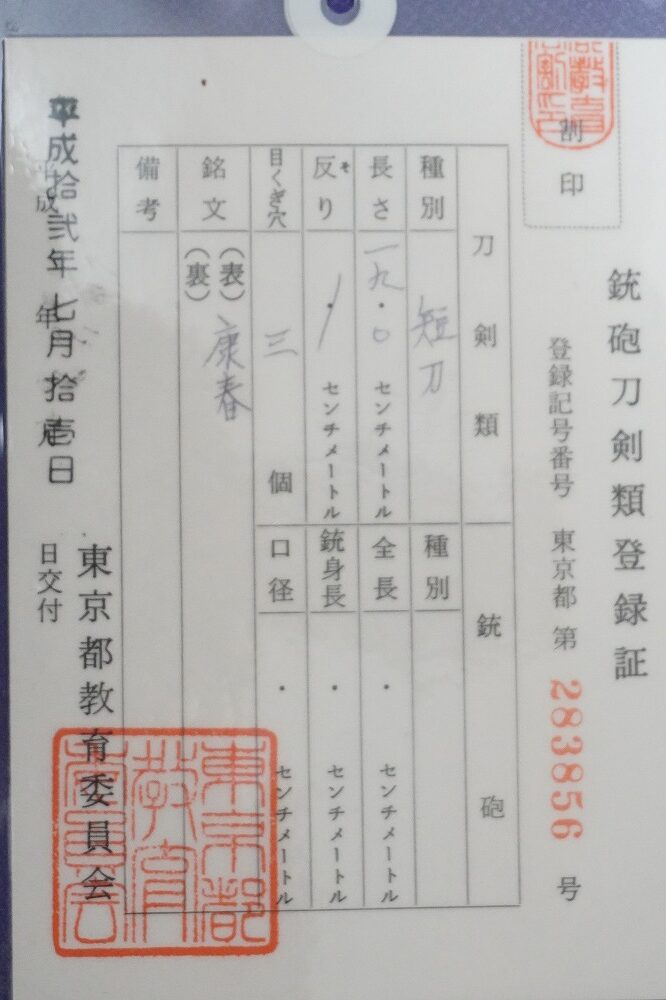 割印
銃砲刀剣類登録証
登録記号番号 東京都 第 283856 号
刀剣類
銃砲
種別 短刀
種別
長さ 一九・〇 センチメートル
全長 ・ センチメートル
反り そ ・ センチメートル
銃身長 ・ センチメートル
目くぎ穴 三 個
口径 ・ センチメートル
銘文 (表) 康春
(裏)
備考
東京都教育委員会
平成拾弐年七月拾壱日
日交付
東京都
教育
委員会